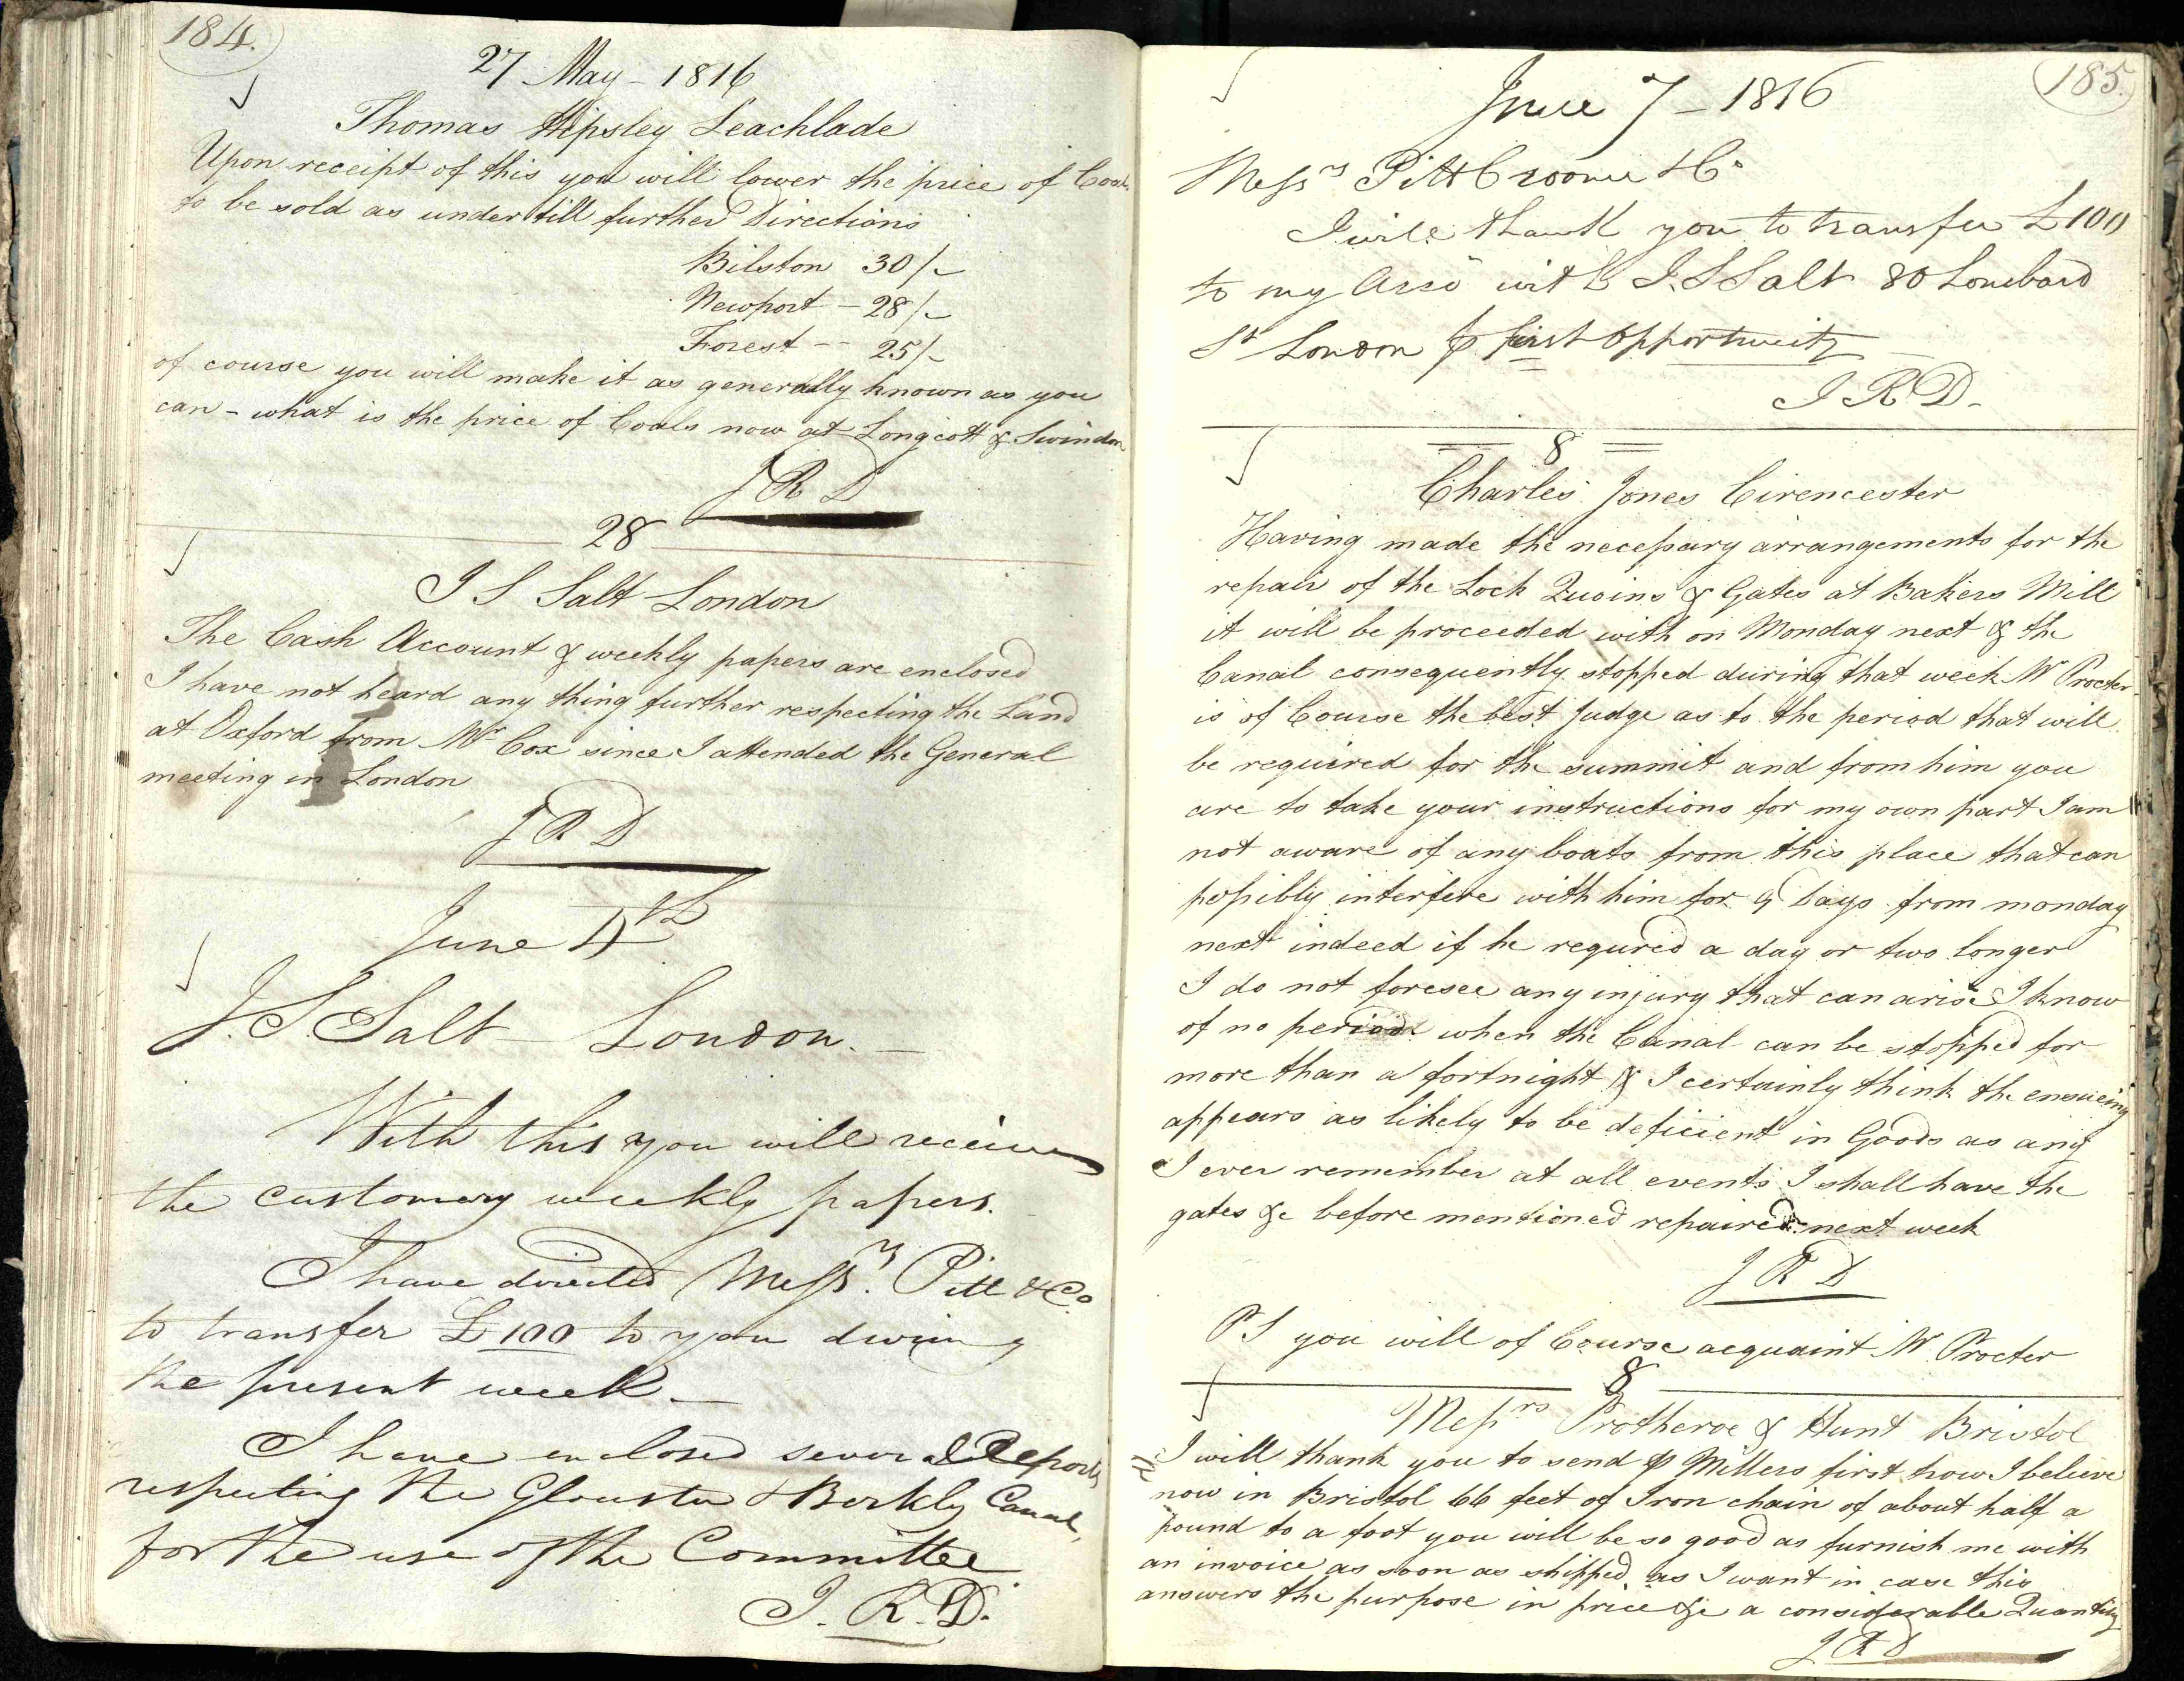 184.
27 May - 1816
Thomas Hipsley Leachlade
Upon receipt of this you will lower the price of Coal
to be sold as under till further Directions
Bilston 30/-
Newport - 28/-
Forest - 25/-
of course you will make it as generally known as you
can - what is the price of Coals now at Longcott & Swindon
J R D
28
J S Salt London
The Cash Account & weekly papers are enclosed
I have not heard any thing further respecting the Land
at Oxford from Mr Cox since I attended the General
meeting in London
J R D
June 4th
J. S. Salt - London. -
With this you will receive
the customary weekly papers.
I have directed Messrs. Pitt & Co.
to transfer £100 to you during
the present week -
I have enclosed several Reports
respecting the Glouster & Berkly Canal,
for the use of the Committee
J. R. D.
185.
June 7 - 1816
Messrs Pitt Croome & Co
I will thank you to transfer £100
to my with J. S Salt 80 Lombard
St London ⅌ first opportunity
J R D -
8
Charles Jones Cirencester
Having made the necessary arrangements for the
repair of the Lock Quoins & Gates at Bakers Mill
it will be proceeded with on Monday next & the
Canal consequently stopped during that week Mr Procter
is of Course the best Judge as to the period that will
be required for the summit and from him you
are to take your instructions for my own part I am
not aware of any boats from this place that can
possibly interfere with him for 9 days from monday
next indeed if he requred a day or two longer
I do not foresee any injury that can arise I know
of no period when the Canal can be stopped for
more than a fortnight & I certainly think the ensueing
appears as likely to be deficient in Goods as any
I ever remember at all events I shall have the
gates &c before mentioned repaired next week
J R D
PS you will of Course acquaint Mr Procter
8
Messrs Protheroe & Hunt Bristol
I will thank you to send ⅌ Millers first trow I believe
now in Bristol 66 feet of Iron chain of about half a
pound to a foot you will be so good as furnish me with
an invoice as soon as shipped as I want in case this
answers the purpose in price &c a considerable Quantity
J R D